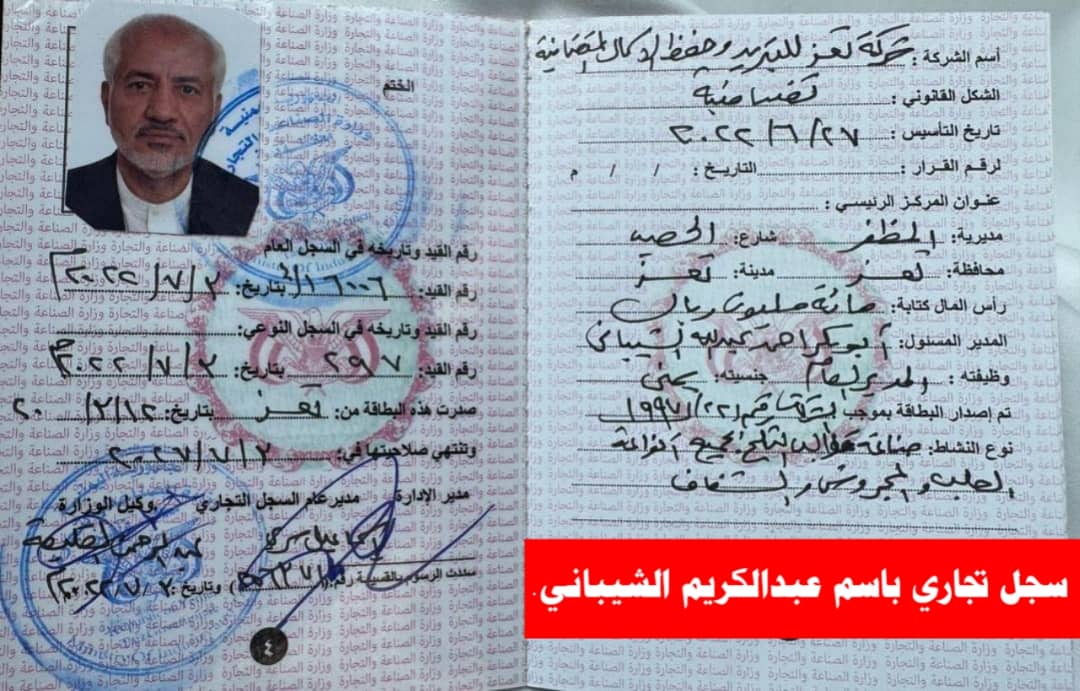 أسم الشركة : شركة تعز للتبريد وحفظ الاسماك التضامنية
الشكل القانوني : تضامنية
تاريخ التأسيس : ٢٠٢٢/٦/٢٧
لرقم القرار : التاريخ : / / م
عنوان المركز الرئيسي :
مديرية: المظفر شارع: الحصب
محافظة: تعز مدينة: تعز
رأس المال كتابة: مائة مليون ريال
المدير المسئول: أبوبكر احمد عبدالله الشيباني
وظيفته : المدير العام جنسيته: يمني
تم إصدار البطاقة بموجب رقم (٢٢) ١٩٩٧
نوع النشاط: صناعة قوالب الثلج بجميع أنواعه
الصلب و المجروش و الشفاف
سجل تجاري باسم عبدالكريم الشيباني.
الختم
رقم القيد وتاريخه في السجل العام
رقم القيد: ١٦٠٠٦ بتاريخ: ٢٠٢٢/٧/٣
رقم القيد وتاريخه في السجل النوعي:
رقم القيد: ٢٩٨٧ بتاريخ: ٢٠٢٢/٧/٣
صدرت هذه البطاقة من: تعز بتاريخ:
وتنتهي صلاحيتها في: ٢٠٢٧/٧/٢
مدير الإدارة مدير عام السجل التجاري وكيل الوزارة
سددت الرسوم بالقسيمة رقم: وتاريخ:
٤